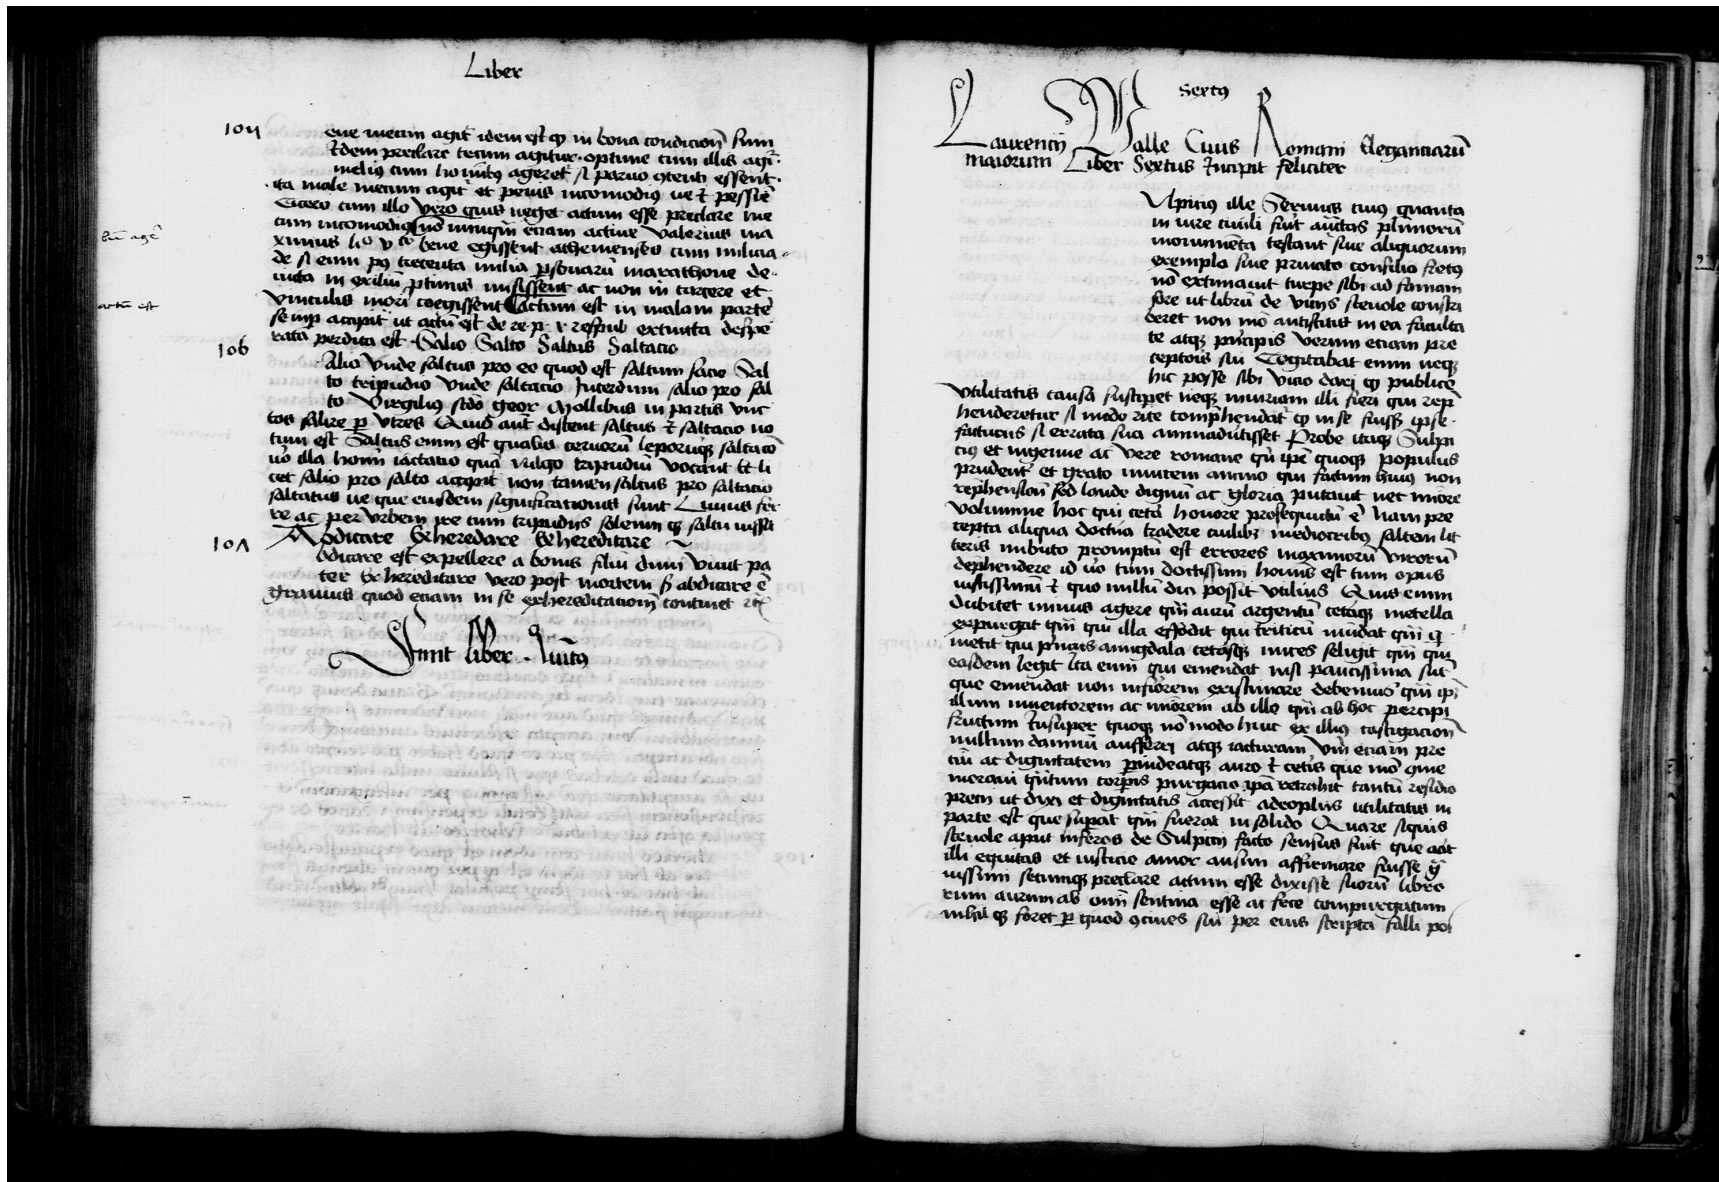 Liber
104
ene mecum agit̄ idem est̄ qꝫ in bona condicion̄ sum
Jtdem preclare tecum agitur · optime cum illis agr̄ ·
melius cum hoīnibꝫ ageret̄ si paruo ꝯtenti essent ·
ita male mecum agit̄ et peius incomodiꝰ ue ⁊ pessie
Cicero cum illo vero quis neget actum esse preclare me
cum incomodiꝰ nō nunqm̄ etiam actiue Valerius ma
bn̄ agē
ximus liº vtº bene egissent athenienses cum milicia
de si eum pꝰ trecenta milia ꝑsauarū marathone de
uicta in exiliū ꝓtinus misissent ac non in carcere et
actū est
vinculis mori coegissent Actum est in malam partē
semꝑ accipit̄ ut actū est de re · p · r · respub extincta despe
rata perdita est · Salio Salto Saltus Saltacio
106
Alio Vnde saltus pro eo quod est saltum facio Sal
to tripudio vnde saltacio Jnterdum salio pro sal
to Virgilius scdō geor Mollibus in partis vnc
tos salire ꝑ vtres Quid aut̄ distent saltus ⁊ saltacio no
tum est Saltus enim est qualis ceruorū leporūqꝫ saltacō
uō illa hoīm iactatio quā vulgo tripudiū vocant Et li
cet salio pro salto accipit̄ non tamen saltus pro saltacio
saltatus ue que eiusdem significationis sunt Liuius fer
re ac per vrbem ire cum tripudiis solenni qꝫ saltu iussit
107
Abdicare Exheredare Exhereditare
bdicare est expellere a bonis filiū dum viuit pa
ter Exhereditare vero post mortem sꝫ abdicare ē
grauius quod etiam in se exhereditacionē continet ⁊c̄
Finit liber · Quītꝰ
Sextꝰ
Laurencij Valle Ciuis Romani Elegantiarū
maiorum Liber Sextus Jncipit feliciter
Vlpicius ille Seruius cuiꝰ quanta
in iure ciuili fuit auctās plīmorū
monumēta testant̄ siue aliquorum
exemplo siue priuato consilio fretꝰ
nō extimauit turpe sibi ad famam
fore ut librū de vitiis sceuole conscri
beret non mō antistitis in ea faculta
te atqꝫ prīcipis verum etiam pre
ceptoris sui Cogitabat enim neqꝫ
hic posse sibi vitio darj qꝫ publice
vtilitatis causa suscipet neqꝫ iniuriam illi fieri qui repͤ
henderetur si modo rite comprehendat̄ qꝫ in se fuiss3 ipse
facturus si errata sua animaduertisset Probe itaqꝫ Sulpi
cius et ingenue ac vere romane qn̄ ipē quoqꝫ populus
prudentͤ et grato inuitem animo qui factum huiꝰ non
rephensiōe sed laude dignū ac gloria putauit nec iniore
volumine hoc qui cetā honore prosequūdū ē Nam pre
cepta aliqua doctrīa tradere cuilibꝫ mediocribꝰ saltem lit
teris imbuto promptū est errores maximorū virorū
dephendere id uō tum doctissimi hoīnis est tum opus
iustissimū ⁊ quo nullū dici possit vtilius Quis enim
dubitet minus agere qm̄ aurū argentū ceteāqꝫ metella
expurgat qm̄ qui illa effodit qui triticū mūdat qm̄ q
metit qui prunis amigdala ceterasqꝫ nuces seligit qm̄ qui
easdem legit Jta enim qui emendat nisi paucissima sūt
que emendat non inferiorem existimare debemus qm̄ ipm̄
illum inuentorem ac minorem ab illo qm̄ ab hoc percipi
fructum Jnsuper quoqꝫ nō modo huic ex illiꝰ castigacione
nullum damnū aufferri atqꝫ iacturam vm̄ etiam pre
ciū ac dignitatem ꝑindeatqꝫ auro ⁊ ceteris que mō que
moraui qm̄tum corꝑis purgacio ipā detrahit tantū residio
precii ut dixi et dignitatis accessit adeoplus utilitatis in
parte est que supat qm̄ fuerat in solido Quare siquis
sceuole aput inferos de Sulpicii facto sensus fuit que erat
illi equitas et iusticie amor ausim affirmare fuisse gͣ
uissimi secumqꝫ preclare actum esse dixisse suorū libro
rum aurum ab omi sentina esse ac fece compurgatum
nihil qꝫ foret ꝑ quod ꝯciues sui per eius scripta falli pos